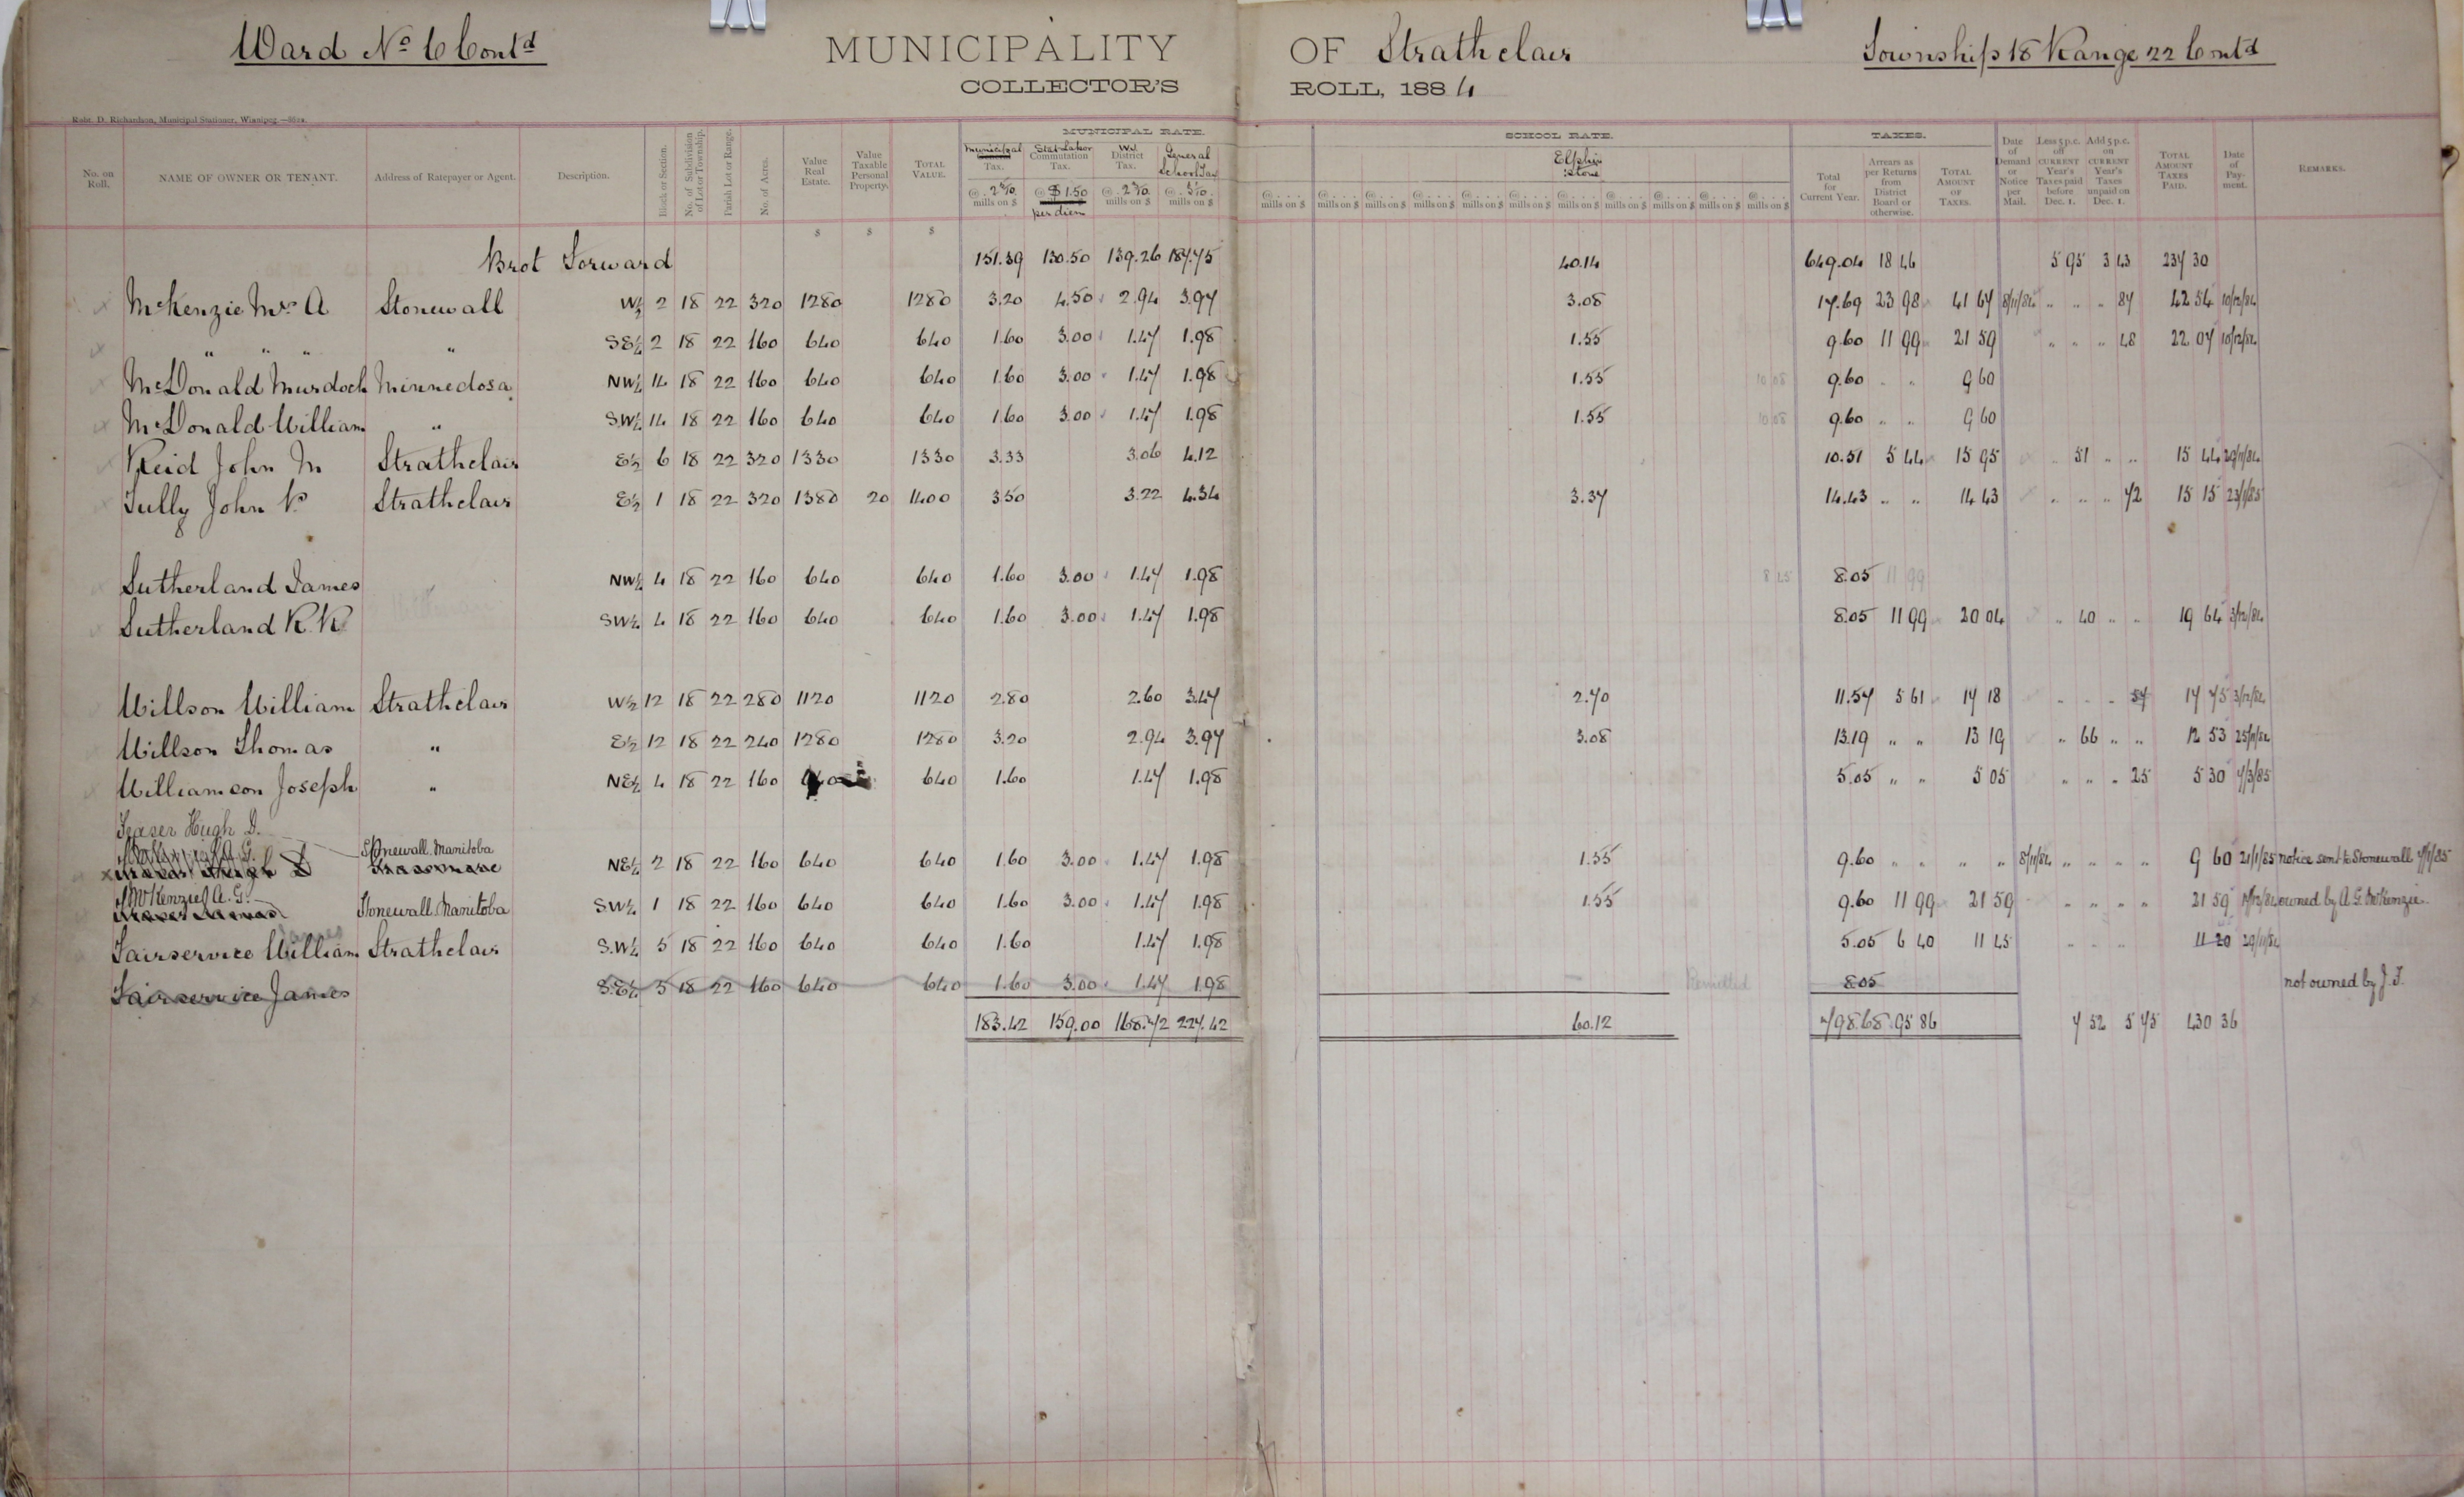 Ward No 6 Contd MUNICIPALITY OF Strathclair Township 18 Range 22 Contd
COLLECTOR'S ROLL, 1884
Robt. D. Richardson, Municipal Stationer, Winnipeg.
MUNICIPAL RATE. SCHOOL RATE. TAXES.
No. on Roll. NAME OF OWNER OR TENANT. Address of Ratepayer or Agent. Description. Block or Section. No. of Subdivision of Lot or Township. Parish Lot or Range. No. of Acres. Value Real Estate. Value Taxable Personal Property. TOTAL VALUE. Municipal General Tax. Stat Labor Commutation Tax. Wd. District Tax. General School Tax Elphinstone Total for Current Year. Arrears as per Returns from District Board or otherwise. TOTAL AMOUNT OF TAXES. Date of Demand or Notice per Mail. Less 5 p.c. off CURRENT Year's Taxes paid before Dec. 1. Add 5 p.c. on CURRENT Year's Taxes unpaid on Dec. 1. TOTAL AMOUNT TAXES PAID. Date of Payment. REMARKS.
@ . 2 5/10 mills on $ @ $1.50 per diem @ . 2 3/10 mills on $ @ . 3 1/10 mills on $ @ . . . . mills on $ @ . . . mills on $ @ . . . mills on $ @ . . . mills on $ @ . . . mills on $ @ . . . mills on $ @ . . . mills on $ @ . . . mills on $ @ . . . mills on $ @ . . . mills on $ @ . . . mills on $
$ $ $
Brot Forward 151.39 130.50 139.26 187.75 40.14 649.04 18 46 5 95 3 43 237 30
McKenzie Mrs A Stonewall W½ 2 18 22 320 1280 1280 3.20 4.50 2.94 3.97 3.08 17.69 23 98 41 67 8/11/84 " " " 87 42 54 10/12/84
" " " " SE¼ 2 18 22 160 640 640 1.60 3.00 1.47 1.98 1.55 9.60 11 99 21 59 " " " 48 22 07 10/12/84
McDonald Murdoch Minnedosa NW¼ 14 18 22 160 640 640 1.60 3.00 1.47 1.98 1.55 10 08 9.60 " " 9 60
McDonald William " SW¼ 14 18 22 160 640 640 1.60 3.00 1.47 1.98 1.55 10 08 9.60 " " 9 60
Reid John M Strathclair E½ 6 18 22 320 1330 1330 3.33 3.06 4.12 10.51 5 44 15 95 " 51 " " 15 44 29/11/84
Tully John R Strathclair E½ 1 18 22 320 1380 20 1400 3.50 3.22 4.34 3.37 14.43 " " 14 43 " " " 72 15 15 23/1/85
Sutherland James NW¼ 4 18 22 160 640 640 1.60 3.00 1.47 1.98 8 45 8.05 11 99
Sutherland R. R. SW¼ 4 18 22 160 640 640 1.60 3.00 1.47 1.98 8.05 11 99 20 04 " 40 " " 19 64 3/12/84
Willson William Strathclair W½ 12 18 22 280 1120 1120 2.80 2.60 3.47 2.70 11.57 5 61 17 18 " " " 57 17 75 3/12/84
Willson Thomas " E½ 12 18 22 240 1280 1280 3.20 2.94 3.97 3.08 13.19 " " 13 19 " 66 " " 12 53 25/11/84
Williamson Joseph " NE¼ 4 18 22 160 640 640 1.60 1.47 1.98 5.05 " " 5 05 " " " 25 5 30 7/3/85
Fraser Hugh D.
Stonewall. Manitoba NE¼ 2 18 22 160 640 640 1.60 3.00 1.47 1.98 1.55 9.60 " " " " 8/11/84 " " " " 9 60 21/1/85 notice sent to Stonewall 7/1/85
McKenzie A. G. Stonewall. Manitoba SW¼ 1 18 22 160 640 640 1.60 3.00 1.47 1.98 1.55 9.60 11 99 21 59 " " " " 21 59 owned by A. G. McKenzie.
Fairservice William James Strathclair S.W¼ 5 18 22 160 640 640 1.60 1.47 1.98 5.05 6 40 11 45 " " " 11 20 29/11/84
Fairservice James S.E¼ 5 18 22 160 640 640 1.60 3.00 1.47 1.98 Remitted 8.05 not owned by J. F.
183.42 159.00 168.72 227.42 60.12 798.68 95 86 7 52 5 75 430 36